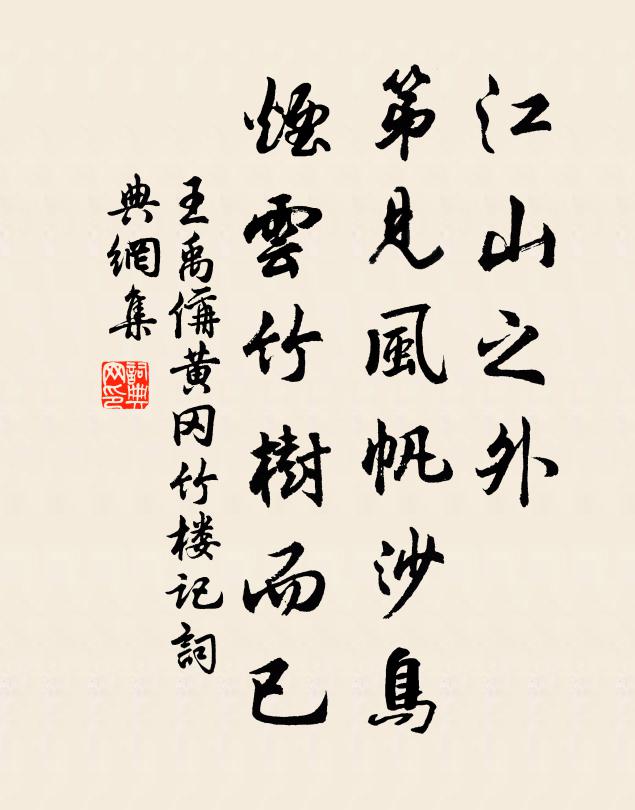 江山之外
第見風帆沙鳥
煙雲竹樹而已
王禹偁黄冈竹楼记詞
典網集
詞典网印